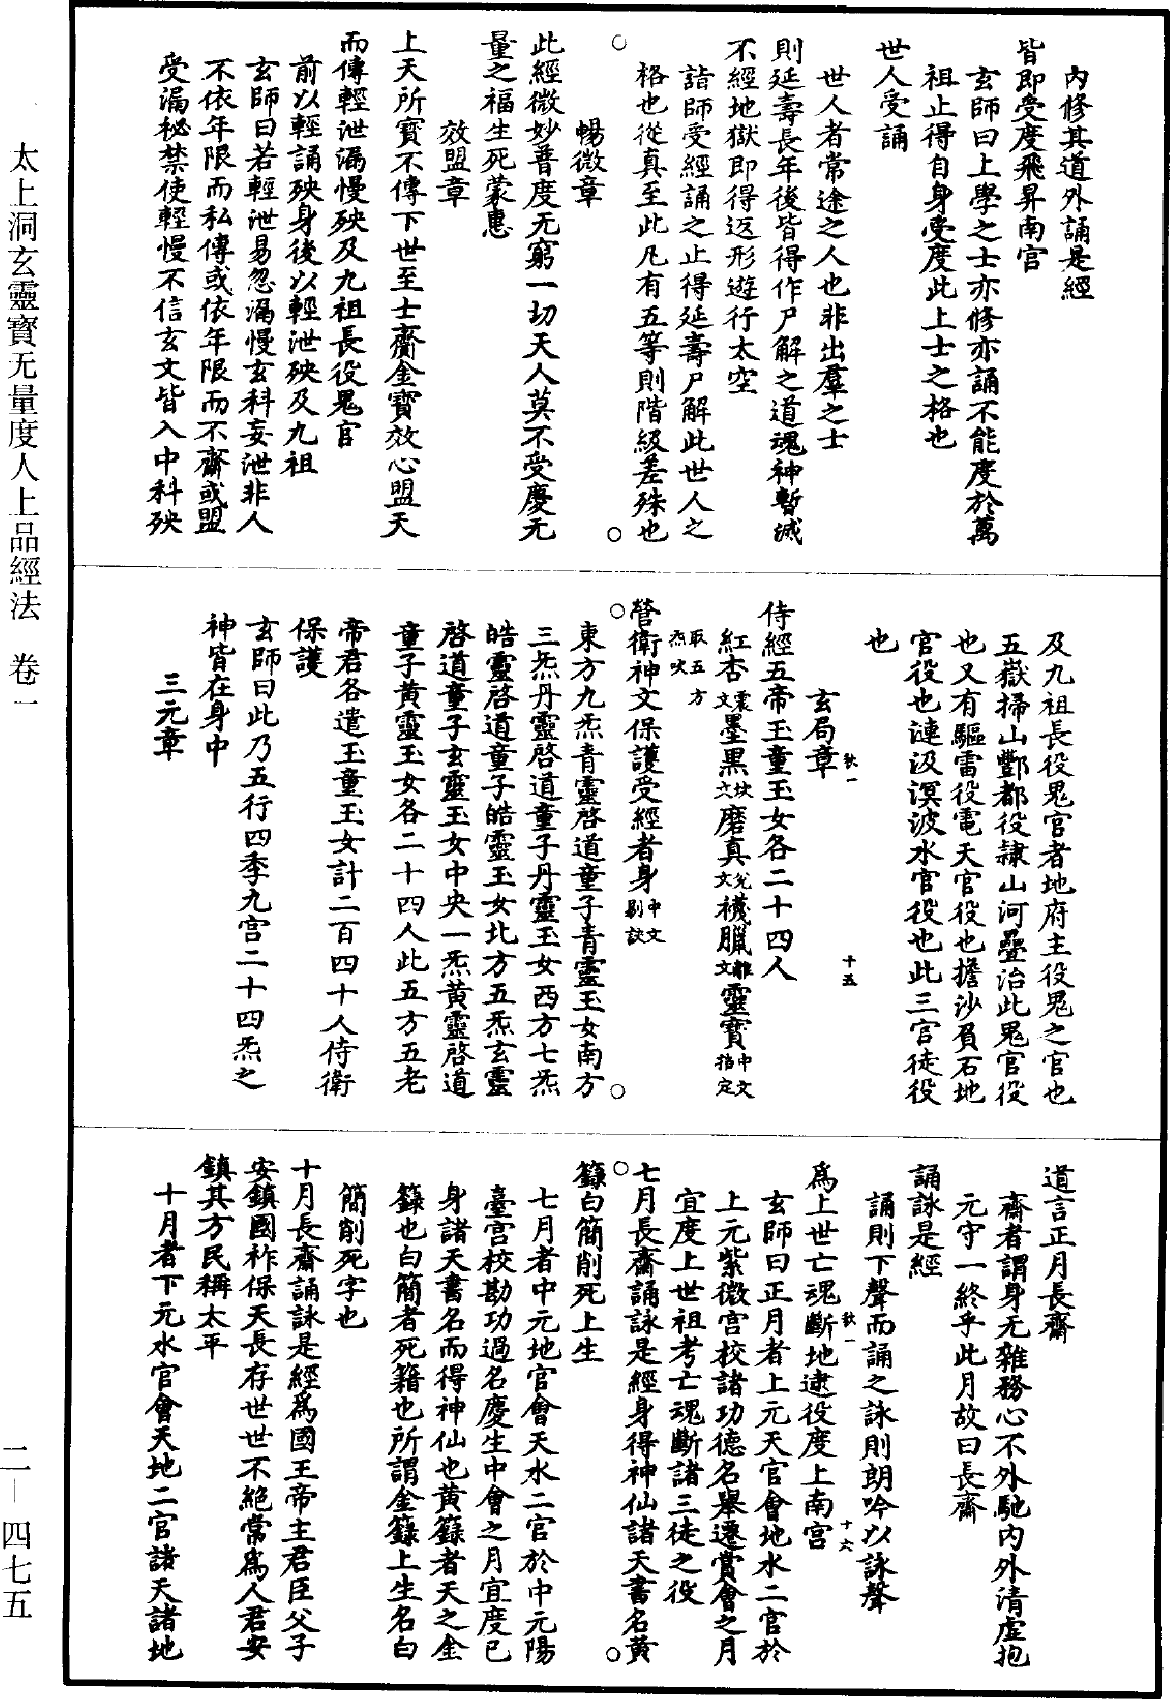 内修其道外誦是經
皆即受度飛昇南宫
玄師曰上學之士亦修亦誦不能度於萬
祖止得自身受度此上士之格也
世人受誦
世人者常途之人也非出羣之士
則延壽長年後皆得作尸解之道魂神暫滅
不經地獄即得返形遊行太空
詣師受經誦之止得延壽尸解此世人之
格也從真至此凡有五等則階級差殊也
○ ○
暢微章
此經微妙普度无窮一切天人莫不受慶无
量之福生死蒙惠
效盟章
上天所寶不傳下世至士齎金寶效心盟天
而傳輕泄漏慢殃及九祖長役鬼官
前以輕誦殃身後以輕泄殃及九祖
玄師曰若輕泄易忽漏慢玄科妄泄非人
不依年限而私傳或依年限而不齋或盟
受漏秘禁使輕慢不信玄文皆入中科殃
及九祖長役鬼官者地府主役鬼之官也
五嶽掃山酆都役隷山河壘治此鬼官役
也又有驅雷役電天官役也擔沙負石地
官役也漣汲溟波水官役也此三官徒役
也
欵一 十五
玄局章
侍經五帝玉童玉女各二十四人
紅杏震文墨黑坎文磨真兌文襪臘離文靈寶中文指定
取五方炁吹
○ ○
營衛神文保護受經者身中文剔訣
東方九炁青靈啓道童子青靈玉女南方
三炁丹靈啓道童子丹靈玉女西方七炁
皓靈啓道童子皓靈玉女北方五炁玄靈
啓道童子玄靈玉女中央一炁黄靈啓道
童子黄靈玉女各二十四人此五方五老
帝君各遣玉童玉女計二百四十人侍衛
保護
玄師曰此乃五行四季九宫二十四炁之
神皆在身中
三元章
道言正月長齋
齋者謂身无雜務心不外馳内外清虚抱
元守一終乎此月故曰長齋
誦詠是經
誦則下聲而誦之詠則朗吟以詠聲
欵一 十六
爲上世亡魂斷地逮役度上南宫
玄師曰正月者上元天官會地水二官於
上元紫微宫校諸功德名舉遷賞會之月
宜度上世祖考亡魂斷諸三徒之役
○ ○
七月長齋誦詠是經身得神仙諸天書名黄
籙白簡削死上生
七月者中元地官會天水二官於中元陽
臺宫校勘功過名慶生中會之月宜度已
身諸天書名而得神仙也黄籙者天之金
籙也白簡者死籍也所謂金籙上生名白
簡削死字也
十月長齋誦詠是經爲國王帝主君臣父子
安鎮國祚保天長存世世不絶常爲人君安
鎮其方民稱太平
十月者下元水官會天地二官諸天諸地
太上洞玄靈寶无量度人上品經法 卷一
二—四七五